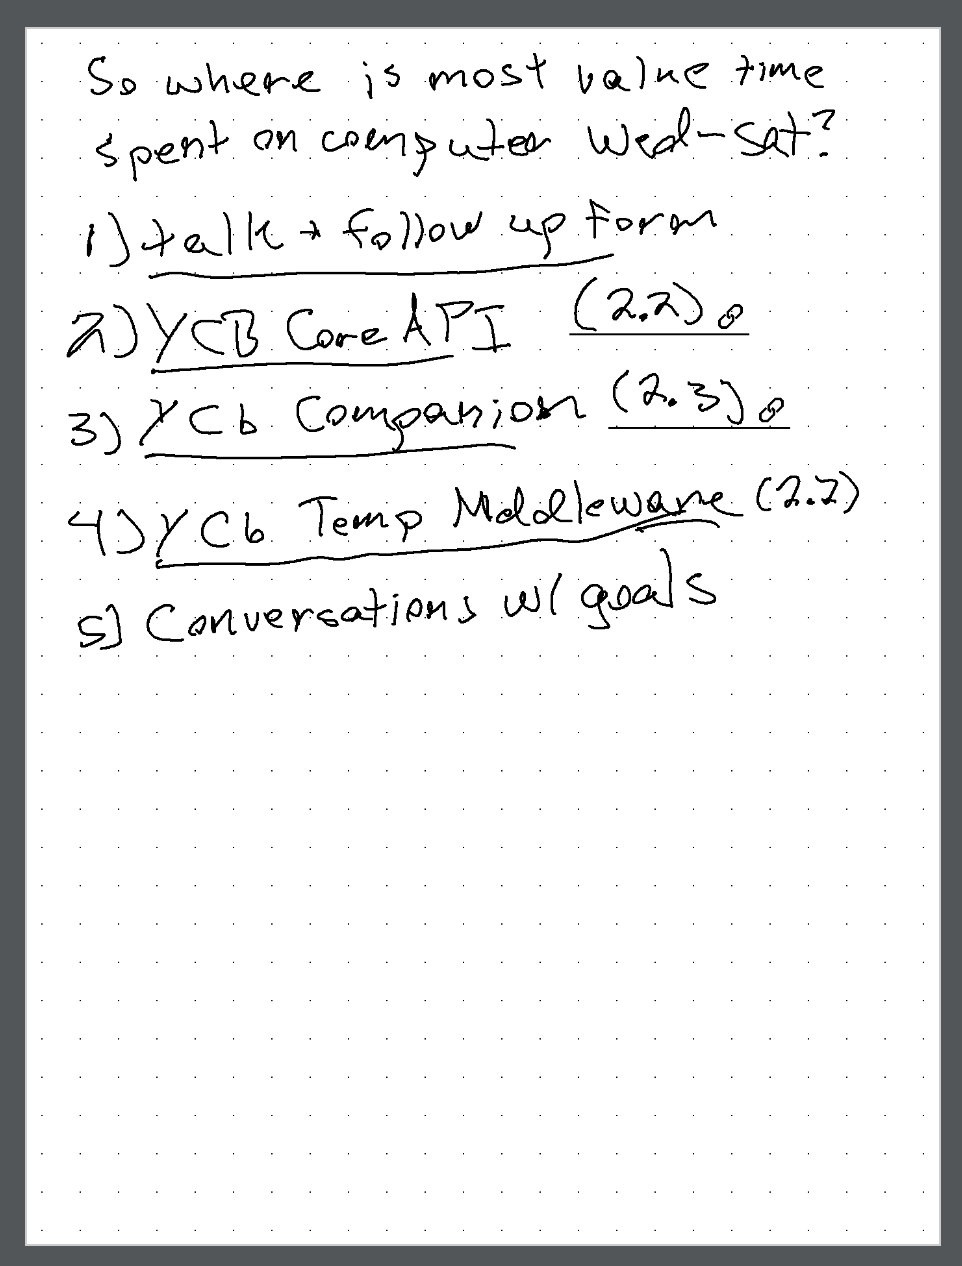 So where is most value time
spent on computer Wed-Sat?
1) talk + follow up form
2) YCB Core API (2.2)
3) YCb Companion (2.3)
4) YCb Temp Middleware (2.2)
5) Conversations w/ goals